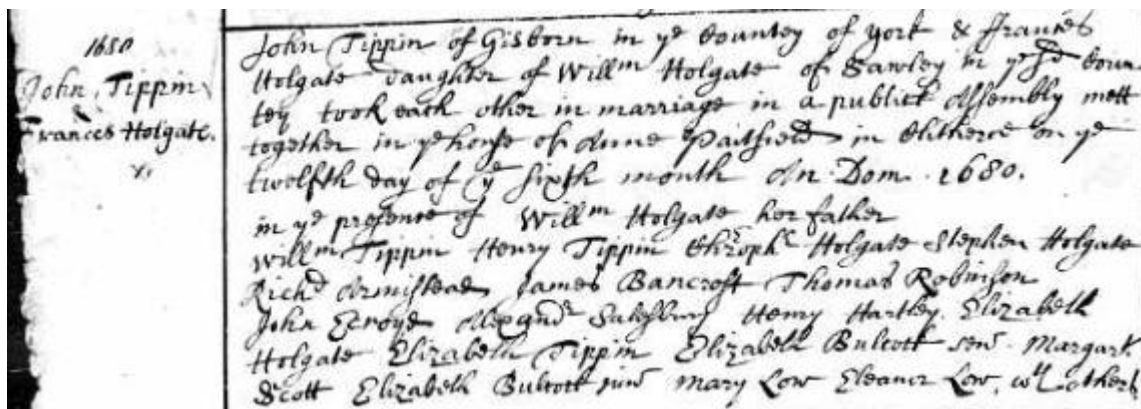 1680
John Tippin
&
Frances Holgate.
John Tippin of Gisborn in ye Countey of york & frances
Holgate daughter of Willm Holgate of Sawley in ye sd Coun
tey took each other in marriage in a publick Assembly mett
together in ye house of Anne in Clitheroe on ye
twelfth day of ye sixth month An. Dom. 1680.
in ye presence of Willm Holgate her father
Willm Tippin Henry Tippin Chrophr Holgate Stephen Holgate
Richd Armistead James Bancroft Thomas Robinson
John Ecroyd Alexandr Salesbury Henry Hartley. Elizabeth
Holgate Elizabeth Tippin Elizabeth Bulcock senr. Margart
Scott Elizabeth Bulcock junr Mary Low Eleanor Low, wth others